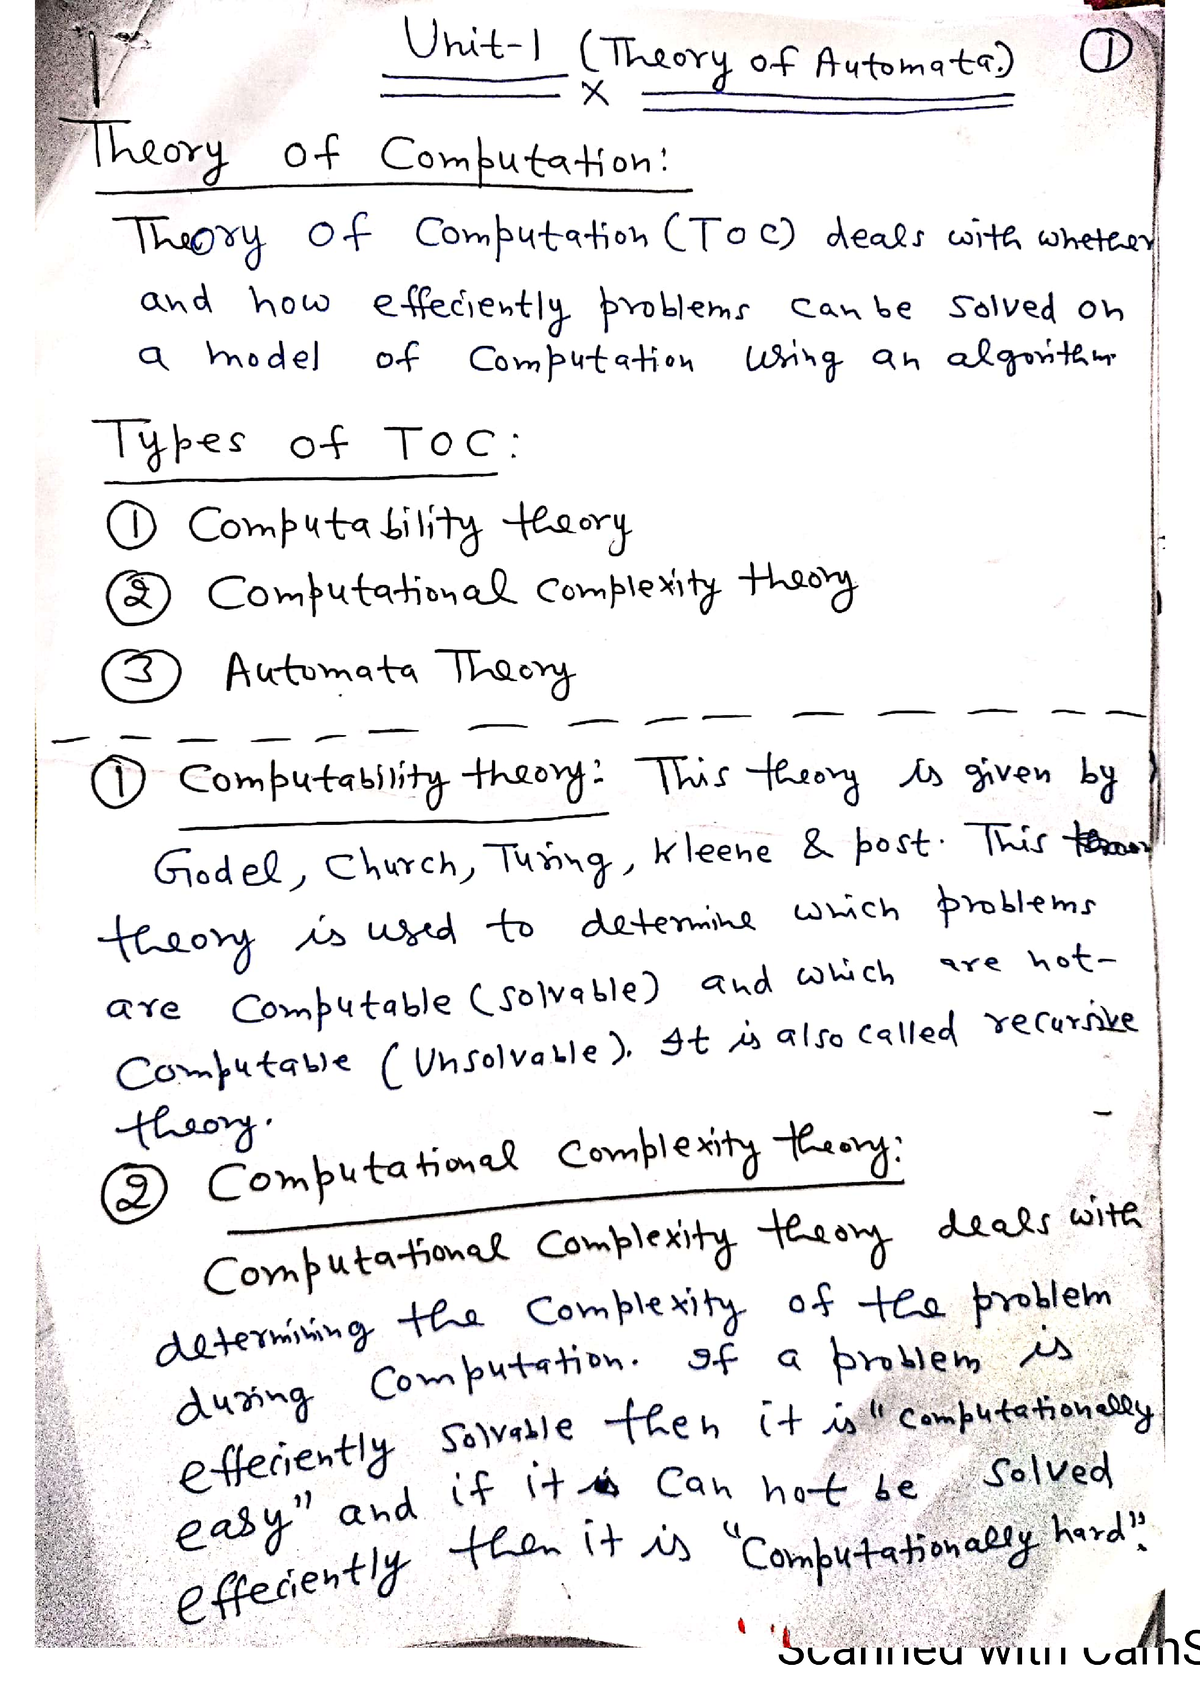 Unit-1 (Theory of Automata) ①
X
Theory of Computation:
Theory of Computation (TOC) deals with whether
and how effeciently problems can be solved on
a model of Computation using an algorithm
Types of TOC:
① Computability theory
② Computational complexity theory
③ Automata Theory
① Computability theory: This theory is given by
Godel, Church, Turing, Kleene & post. This
theory is used to determine which problems
are Computable (solvable) and which are not-
Computable (Unsolvable). It is also called recursive
theory.
② Computational Complexity theory:
Computational Complexity theory deals with
determining the Complexity of the problem
during Computation. If a problem is
effeciently Solvable then it is "Computationally
easy" and if it Can not be Solved
effeciently then it is "Computationally hard".